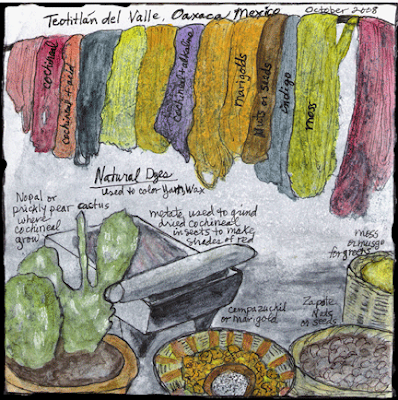 Teotitlán del Valle, Oaxaca, Mexico
October 2008
cochineal
cochineal + acid
cochineal + alkaline
marigolds
Nuts or seeds
indigo
moss
Natural Dyes
used to color Yarn, Wax
Nopal or
prickly pear cactus
where
cochineal
grow
metate, used to grind
dried cochineal
insects to make
shades of red
moss
or musgo
for greens
cempazuchil
or marigold
Zapote
Nuts
or seeds